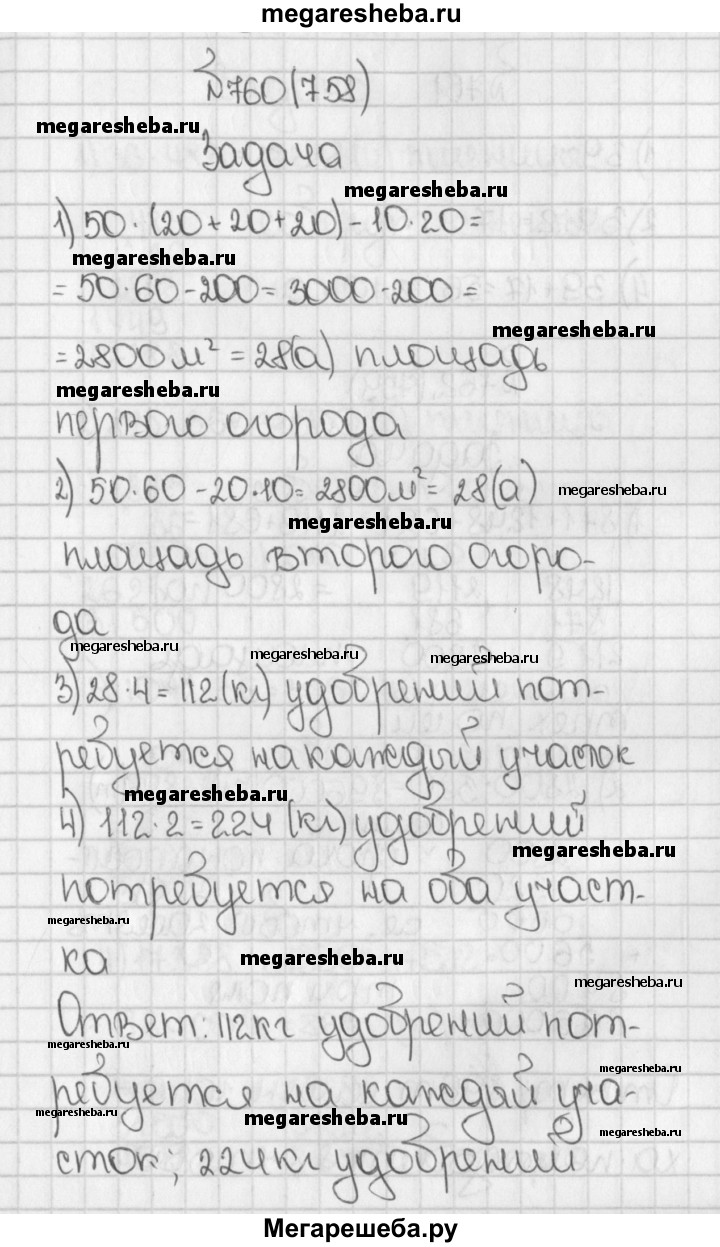 megaresheba.ru
№760(758)
megaresheba.ru
Задача
megaresheba.ru
1) 50·(20+20+20)-10·20=
megaresheba.ru
=50·60-200=3000-200=
megaresheba.ru
=2800м²=28(а) площадь
megaresheba.ru
первого огорода
2) 50·60-20·10=2800м²=28(а)
megaresheba.ru
megaresheba.ru
площадь второго огоро-
да
megaresheba.ru
megaresheba.ru
megaresheba.ru
3) 28·4=112(кг) удобрений пот-
ребуется на каждый участок
megaresheba.ru
4) 112·2=224(кг) удобрений
megaresheba.ru
потребуется на оба участ-
megaresheba.ru
ка
megaresheba.ru
megaresheba.ru
Ответ: 112кг удобрений пот-
megaresheba.ru
megaresheba.ru
ребуется на каждый уча-
megaresheba.ru
megaresheba.ru
megaresheba.ru
сток; 224кг удобрений
Мегарешеба.ру